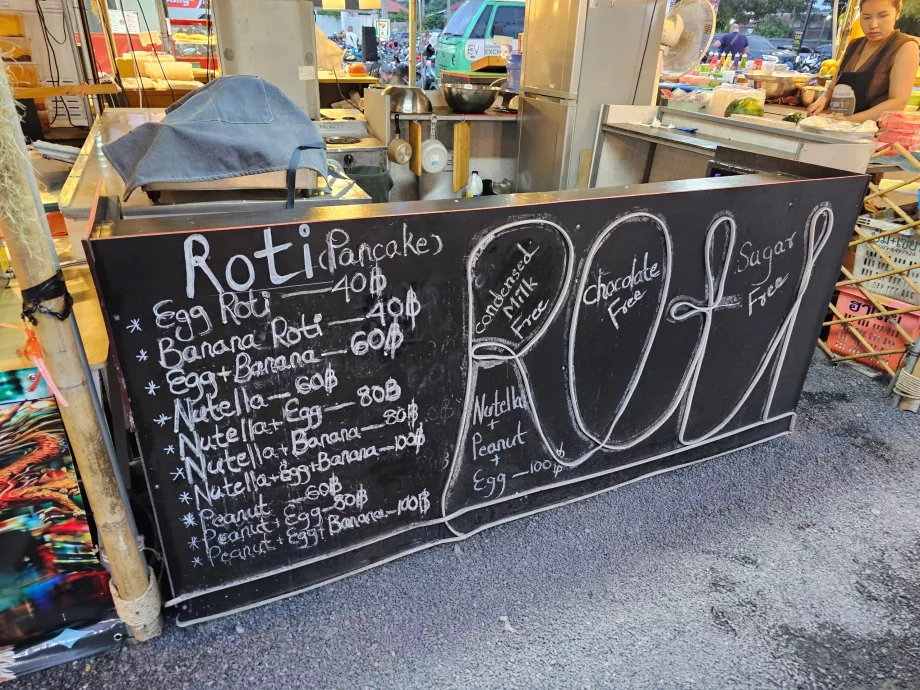 Roti (Pancake)
* Egg Roti — 40฿
* Banana Roti — 40฿
* Egg+Banana — 60฿
* Nutella — 60฿
* Nutella+Egg — 80฿
* Nutella+Banana — 80฿
* Nutella+Egg+Banana — 100฿
* Peanut — 60฿
* Peanut+Egg — 80฿
* Peanut+Egg+Banana — 100฿
Roti
condensed
Milk
Free
chocolate
Free
Sugar
Free
Nutella
+
Peanut
+
Egg — 100฿
EV